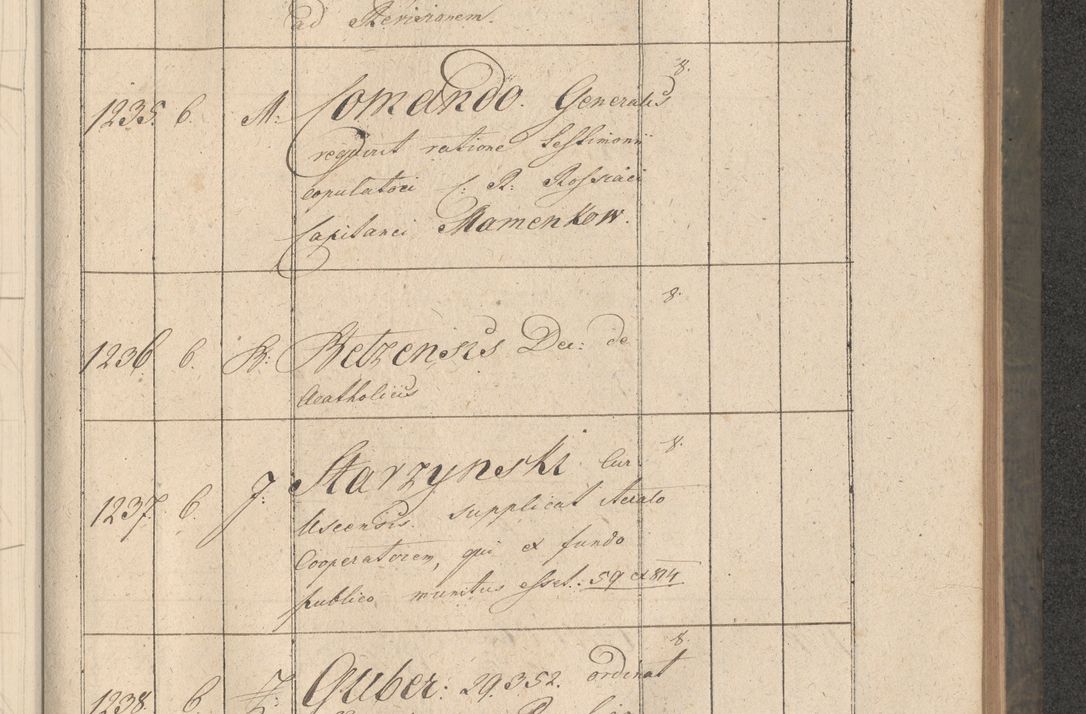 ad Revisionem.
8.
1235. 6. M: Comando Generalis
requirit ratione testimonii
copulatori C: R: Rossiaci
Capitanei Mamenkow.
8.
1236 6. B: Betzensis Dec: de
Acatholicis
8.
1237. 6. J: Starzynski Cur.
Uscensis supplicat iterato
Cooperatorem, qui ex fundo
publico munitus esset. 59 et 814
8.
1238. 6. Guber: 29.352. ordinat